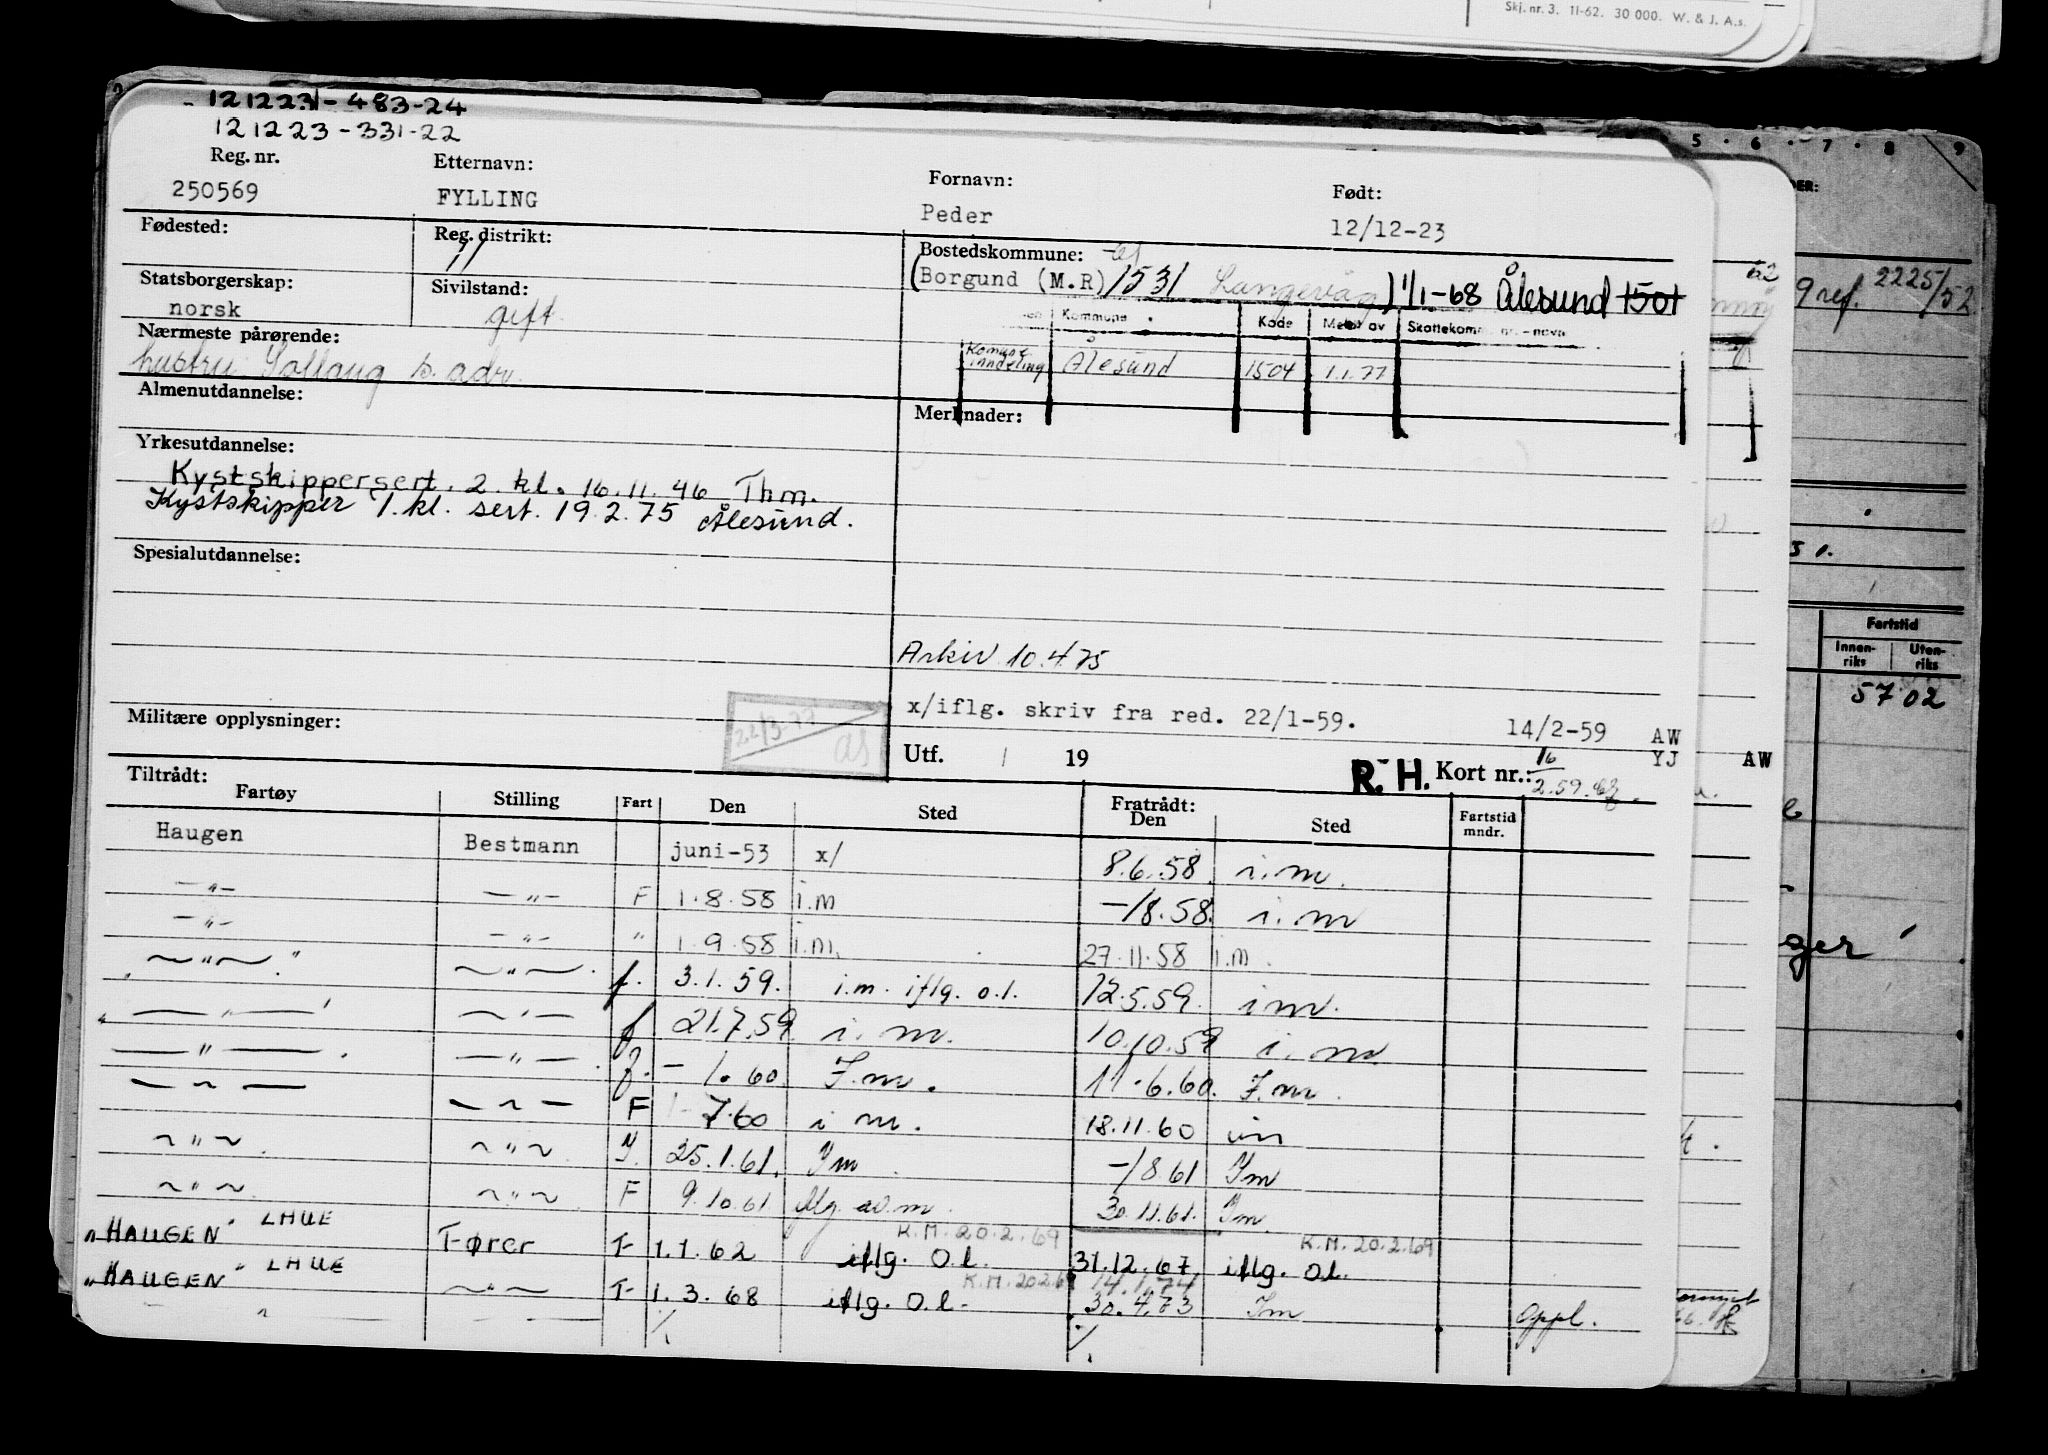 Skj. nr. 3. 11-62. 30 000. W. & J. A.s.
121223-483-24
121223-331-22
Reg. nr. Etternavn: Fornavn: Født:
250569 FYLLING Peder 12/12-23
Fødested: Reg. distrikt: Bostedskommune:
11 (Borgund (M.R) 1531 Langevåg) 1/1-68 Ålesund 1501
Statsborgerskap: Sivilstand:
norsk gift
Kommune Kode Meldt av Skattekom. nr. - navn
Nærmeste pårørende:
hustru Sollaug s. adr.
Komune inndeling Ålesund 1504 1.1.77
Almenutdannelse: Merknader:
Yrkesutdannelse:
Kystskippersert. 2. kl. 16.11.46 Thm.
Kystskipper 1. kl. sert. 19.2.75 Ålesund.
Spesialutdannelse:
Arkiv 10.4.75
x/iflg. skriv fra red. 22/1-59. 14/2-59 AW
Militære opplysninger: 22/3-77 as
Utf. / 19 YJ AW
R.H. Kort nr.: 16/2.59.
Tiltrådt: Fratrådt:
Fartøy Stilling Fart Den Sted Den Sted Fartstid mndr.
Haugen Bestmann juni-53 x/ 8.6.58. i.m.
—"— —"— F 1.8.58 i.m —/8.58. i.m
—"— —"— " 1.9.58 i.m. 27.11.58 i.m.
—"— —"— f. 3.1.59. i.m. iflg. o.l. 12.5.59. im.
—"— —"— f 21.7.59. i.m. 10.10.59 i.m
—"— —"— f. —1.60. I.m. 11.6.60. I.m.
—"— —"— F 7.60 i m. 18.11.60 im
—"— —"— 25.1.61. Im —/8.61 Im
—"— —"— F 9.10.61 iflg. av.m. 30.11.61. Im.
K.M. 20.2.69 K.M. 20.2.69
"HAUGEN" LHUE Fører T 1.1.62 iflg. O.l. 31.12.67. iflg. O.l.
K.M. 20.2.69 14.1.74
"HAUGEN" LHUE —"— T 1.3.68 iflg. O.l. 30.4.73 Im Oppl.
5 . 6 . 7 . 8 9
9 ref. 2225/52
Fartstid
Innen-riks Uten-riks
5702